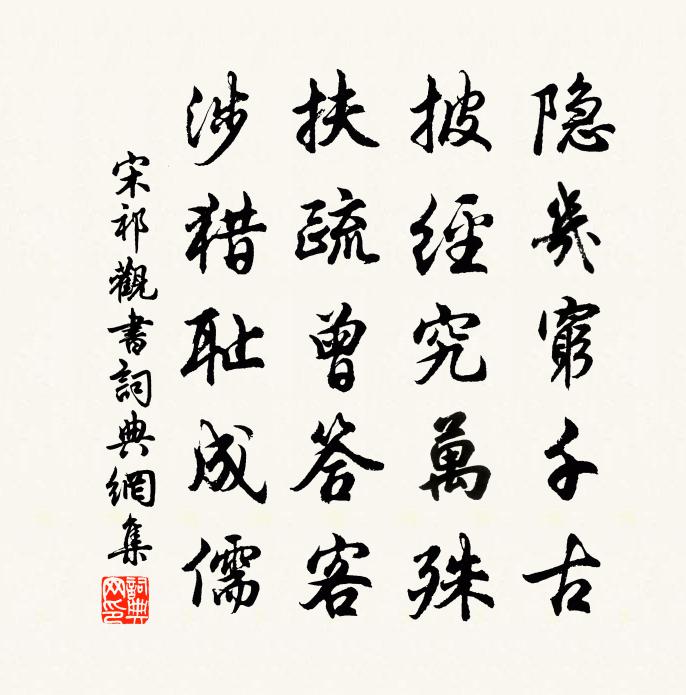 隐几穷千古
披經究萬殊
扶疏曾答客
涉猎耻成儒
宋祁觀書詞典網集
詞典网印